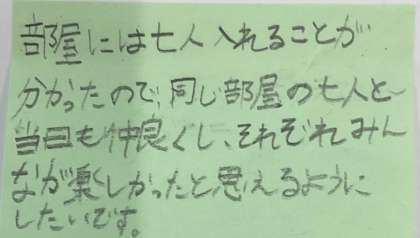 部屋には七人入れることが
分かったので、同じ部屋の七人と
当日も仲良くし、それぞれみん
なが楽しかったと思えるように
したいです。